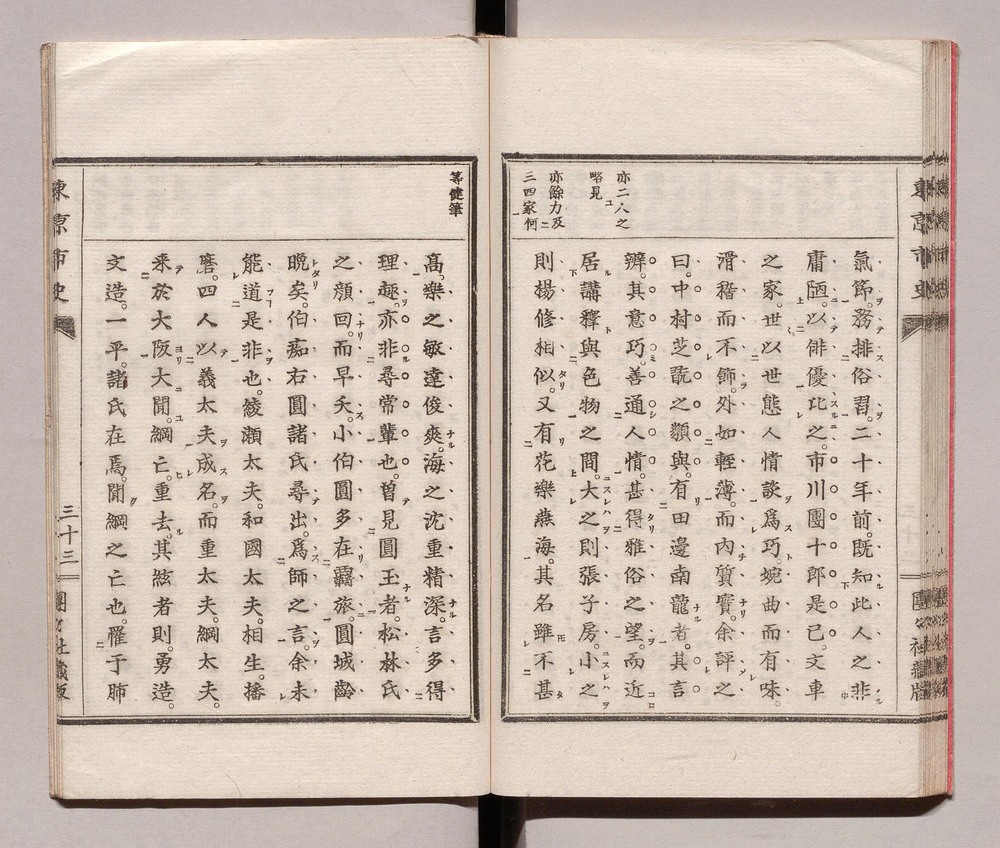 亦二人之
略見
亦餘力及
三四家何
氣節。務排俗習。二十年前。既知此人之非
庸𨹟。以俳優比之。市川團十郎是已。文車
之家。世以世態人情談爲巧。婉曲而有味。
滑稽而不飾。外如輕薄。而内質實。余評之
曰。中村芝翫之顙與。有田邊南龍者。其言
辨。其意巧。善通人情。甚得雅俗之望。而近
居講釋與色物之間。大之則張子房。小之
則楊修相似。又有花樂燕海。其名雖不甚
等健筆
高。樂之敏達俊爽。海之沈重精深。言多得
理趣。亦非尋常輩也。曽見圓玉者。松林氏
之顔回。而早夭。小伯圓多在霿旅。圓城齡
晩矣。伯痴右圓諸氏尋出。爲師之言。余未
能道是非也。綾瀬太夫。和國太夫。相生。播
磨。四人以義太夫成名。而重太夫。綱太夫。
来於大阪大聞。綱亡。重去。其絃者則。勇造。
文造。一平。諸氏在焉。聞綱之亡也。罹于肺
東京市史
三十三
團々社藏版